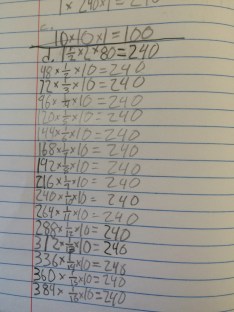 1 × 240 × 1 =
10×10×1=100
d. 1 1/2×2×80=240
48×1/2×10=240
72×1/3×10=240
96×1/4×10=240
120×1/5×10=240
144×1/6×10=240
168×1/7×10=240
192×1/8×10=240
216×1/9×10=240
240×1/10×10=240
264×1/11×10=240
288×1/12×10=240
312×1/13×10=240
336×1/14×10=240
360×1/15×10=240
384×1/16×10=240